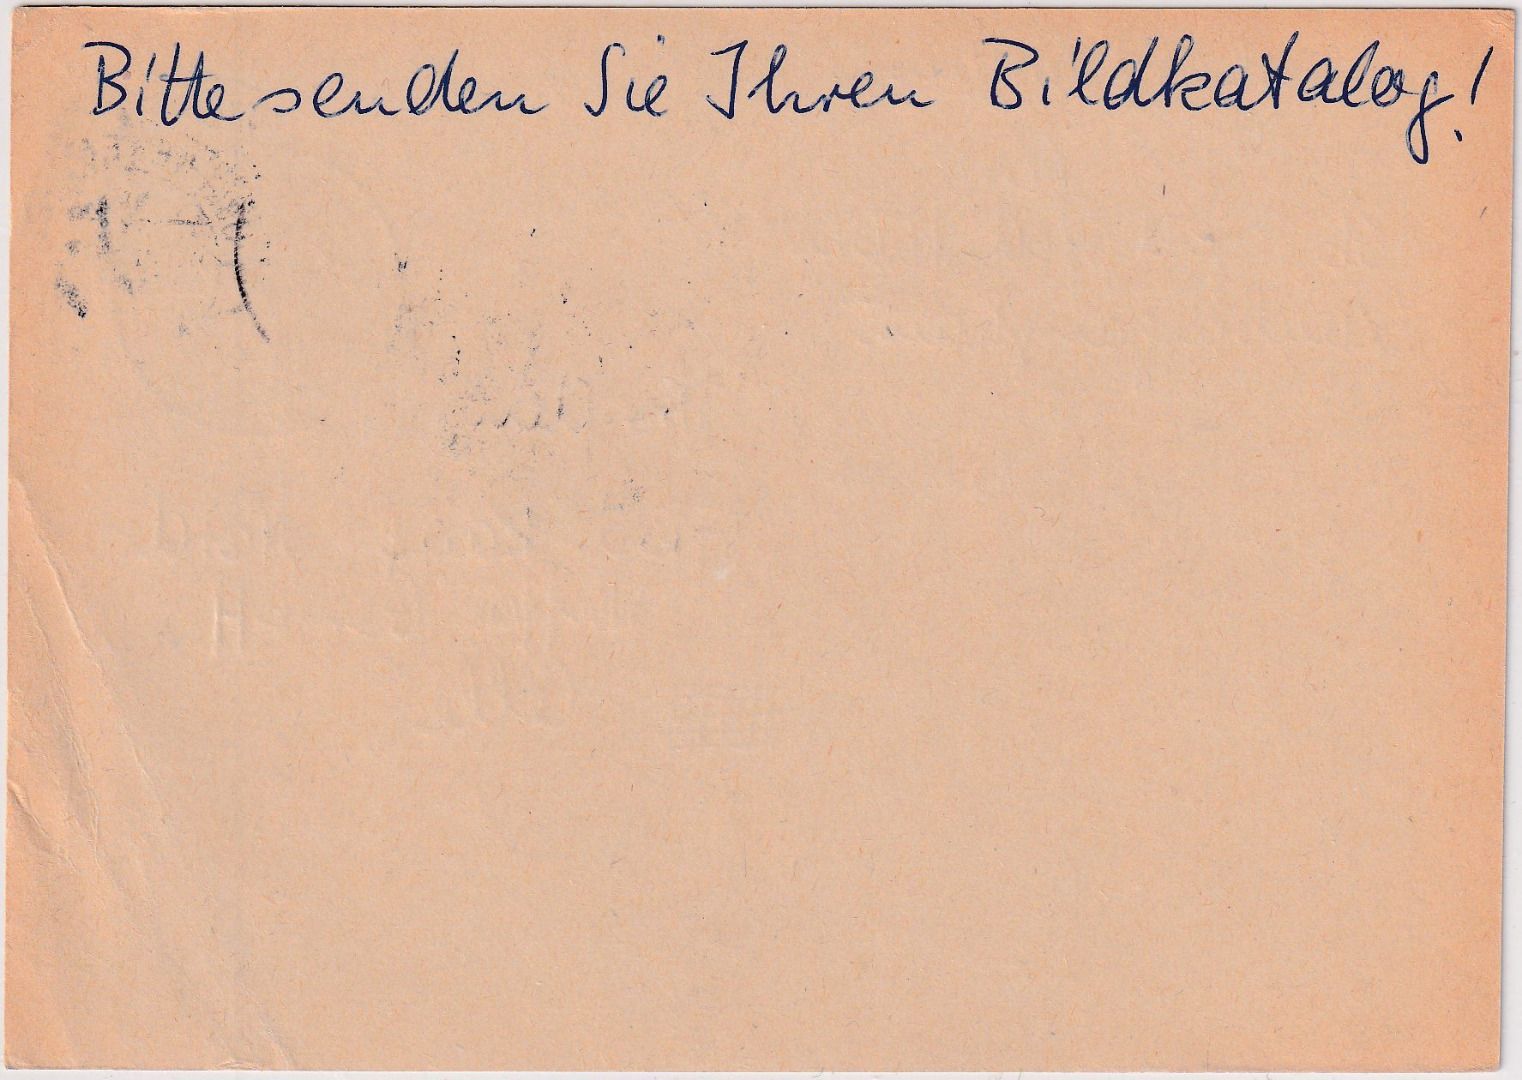 Bitte senden Sie Ihren Bildkatalog!